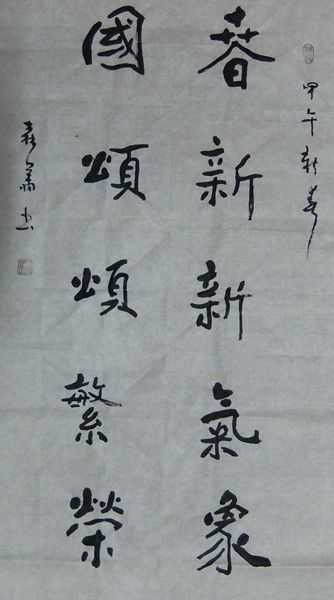 甲午新春
春新新氣象
國頌頌繁榮